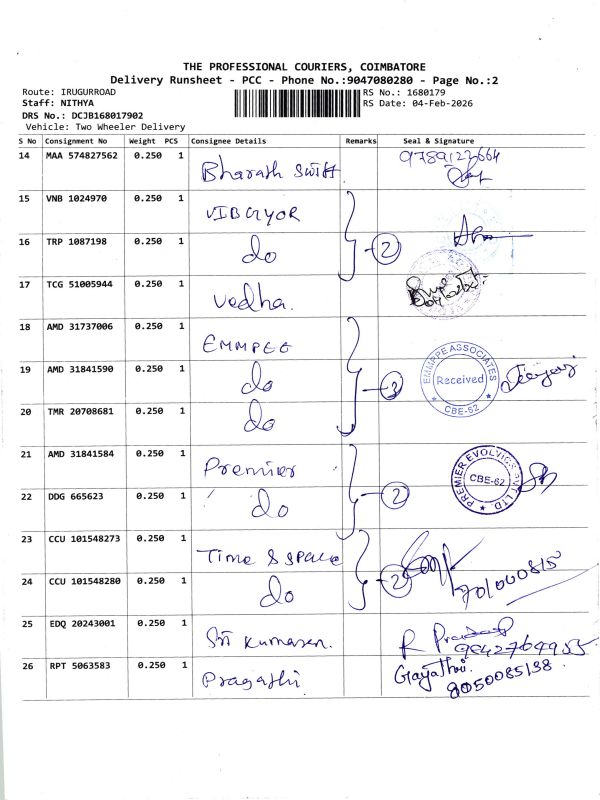 THE PROFESSIONAL COURIERS, COIMBATORE
Delivery Runsheet - PCC - Phone No.:9047080280 - Page No.:2
Route: IRUGURROAD
RS No.: 1680179
Staff: NITHYA
RS Date: 04-Feb-2026
DRS No.: DCJB168017902
Vehicle: Two Wheeler Delivery
S No Consignment No Weight PCS Consignee Details Remarks Seal & Signature
14 MAA 574827562 0.250 1 Bharath Swift 9789122664
15 VNB 1024970 0.250 1 VIBGYOR
16 TRP 1087198 0.250 1 do 2
17 TCG 51005944 0.250 1 Vedha.
18 AMD 31737006 0.250 1 EMMPEE
19 AMD 31841590 0.250 1 do 3 EMMRPE ASSOCIATES Received CBE-62
20 TMR 20708681 0.250 1 do
21 AMD 31841584 0.250 1 Premier PREMIER EVOLVICS PVT LTD. CBE-62
22 DDG 665623 0.250 1 do 2
23 CCU 101548273 0.250 1 Time & space
24 CCU 101548280 0.250 1 do 2
25 EDQ 20243001 0.250 1 Sri Kumaran. R Pradeep
26 RPT 5063583 0.250 1 Pragathi. Gayathri. 9050085138.